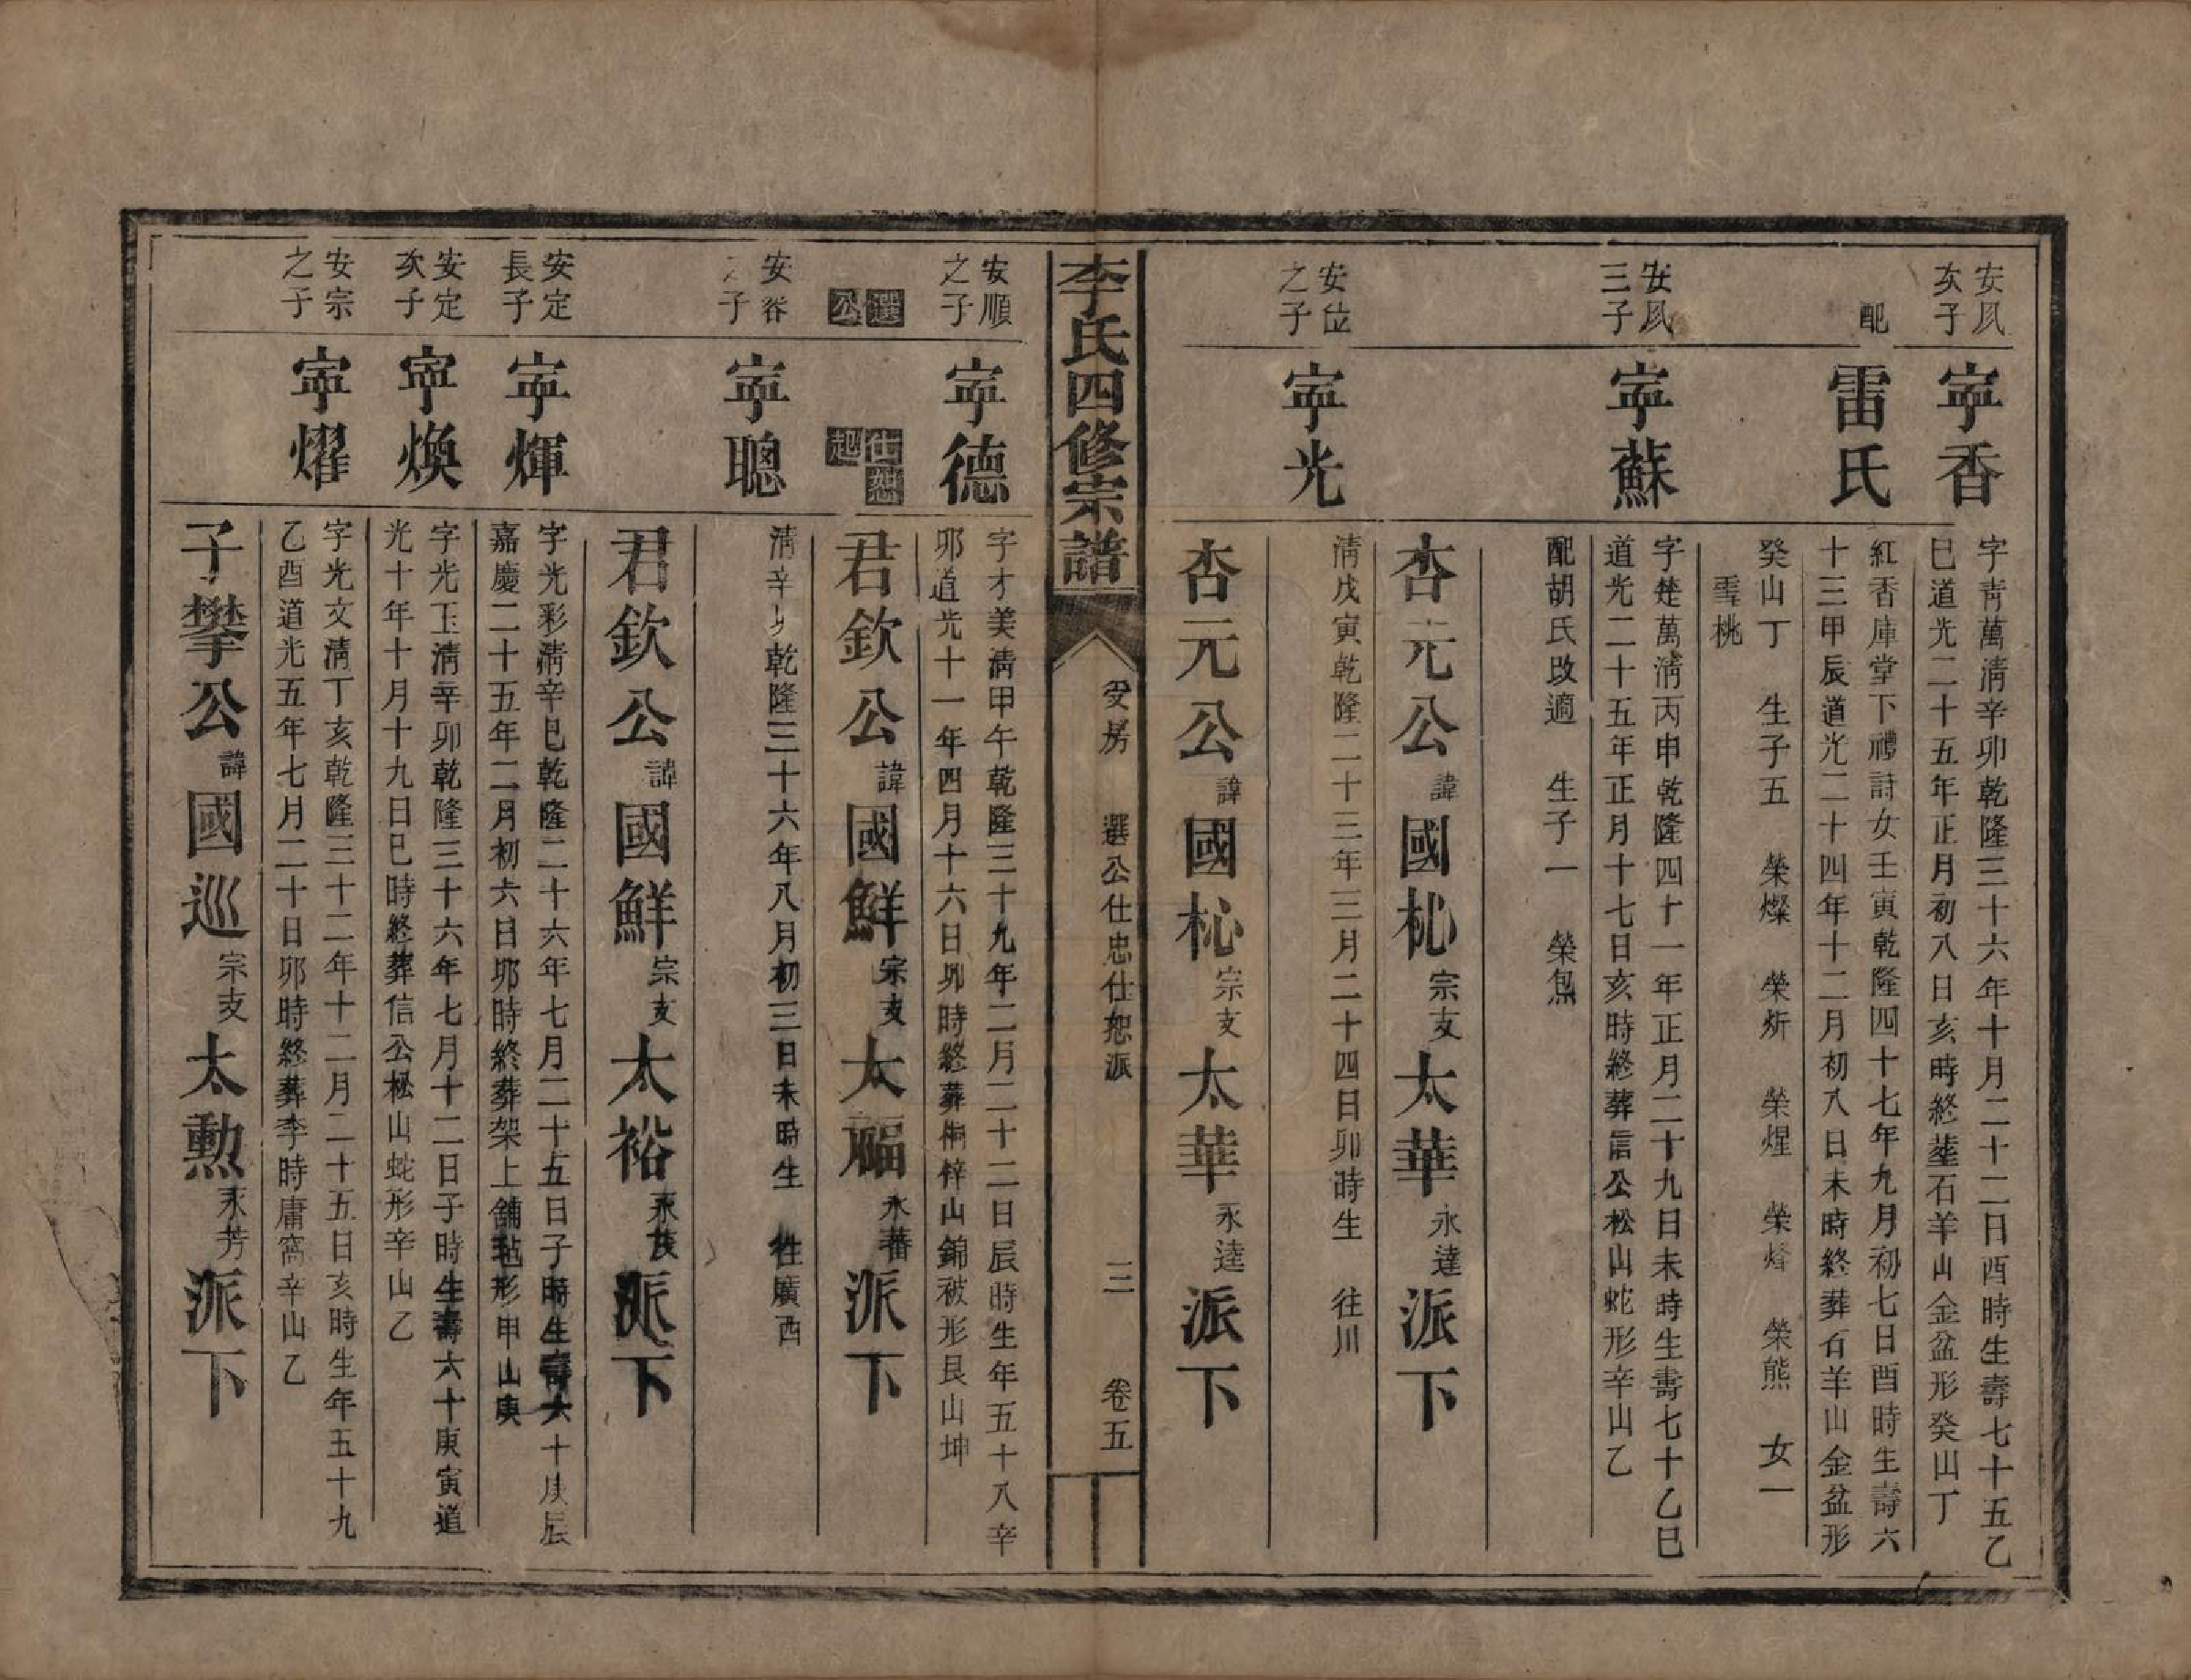 安凨次子
寕香
字靑萬淸辛卯乾隆三十六年十月二十二日酉時生壽七十五乙
巳道光二十五年正月初八日亥時終塟石羊山金盆形癸山丁
配
雷氏
紅香庫堂下禮詩女壬寅乾隆四十七年九月初七日酉時生壽六
十三甲辰道光二十四年十二月初八日未時終葬石羊山金盆形
癸山丁 生子五 榮燦 榮炘 榮煋 榮㷳 榮熊 女一
雪桃
安凨三子
寕蘇
字楚萬淸丙申乾隆四十一年正月二十九日未時生壽七十乙巳
道光二十五年正月十七日亥時終葬信公松山蛇形辛山乙
配胡氏改適 生子一 榮炰
杏元公諱國杺宗支太華永達派下
安位之子
寕光
淸戊寅乾隆二十三年三月二十四日卯時生 往川
杏元公諱國杺宗支太華永逵派下
李氏四修宗譜
受房 選公仕忠仕恕派 三 卷五
安順之子
寕德
字才美淸甲午乾隆三十九年二月二十二日辰時生年五十八辛
卯道光十一年四月十六日卯時終葬桐梓山錦被形艮山坤
選公
仕恕起
君欽公諱國鮮宗支太福永蕃派下
安谷之子
寕聰
淸辛卯乾隆三十六年八月初三日未時生 徃廣西
君欽公諱國鮮宗支太裕永葰派下
安定長子
寕輝
字光彩淸辛巳乾隆二十六年七月二十五日子時生壽六十庚辰
嘉慶二十五年二月初六日卯時終葬架上舖毡形甲山庚
安定次子
寕煥
字光玉淸辛卯乾隆三十六年七月十二日子時生壽六十庚寅道
光十年十月十九日巳時終葬信公松山蛇形辛山乙
安宗之子
寕燿
字光文淸丁亥乾隆三十二年十二月二十五日亥時生年五十九
乙酉道光五年七月二十日卯時終葬李時庸窩辛山乙
子攀公諱國巡宗支太勲永芳派下